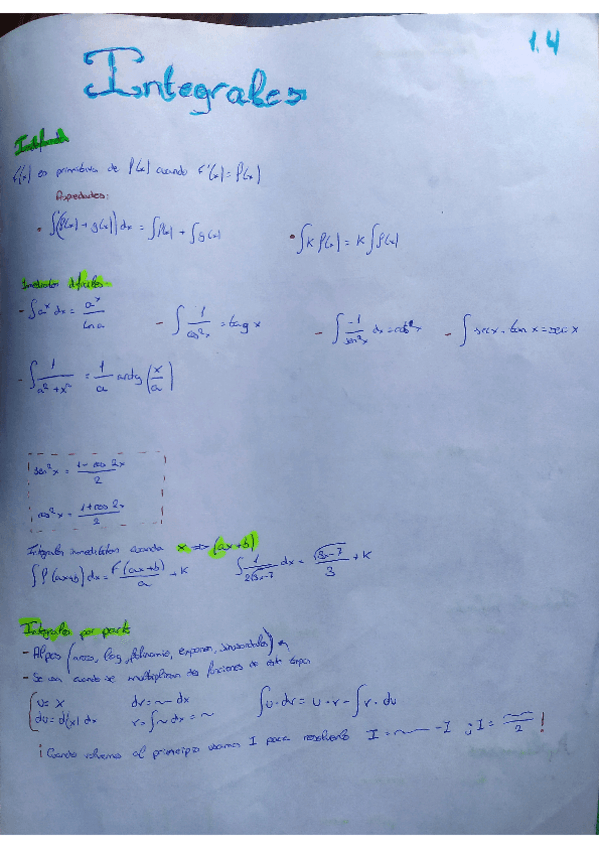 1.4
Integrales
Indefinida
F(x) es primitiva de f(x) cuando F'(x) = f(x)
Propiedades:
• ∫(f(x) + g(x)) dx = ∫f(x) + ∫g(x) • ∫K f(x) = K ∫f(x)
Inmediatas difíciles
- ∫a^x dx = a^x / Ln a - ∫ 1/cos²x = tag x - ∫ -1/sen²x dx = cot x - ∫ sec x · tan x = sec x
- ∫ 1/(a² + x²) = 1/a arctg (x/a)
sen²x = (1 - cos 2x)/2
cos²x = (1 + cos 2x)/2
Integrales inmediatas cuando x => (ax+b)
∫f(ax+b) dx = F(ax+b)/a + K ∫ 1/(2√3x-7) dx = √3x-7/3 + K
Integrales por parte
- Alpes (arcos, log, polinomio, exponen, sinusoidales)
- Se usa cuando se multiplican dos funciones de este tipo
u = x dv = ~ dx ∫u · dv = u · v - ∫v · du
du = d(x) dx v = ∫~ dx = ~
¡Cuando volvemos al principio usamos I para resolverlo I = ~ - I ; I = ~/2 !